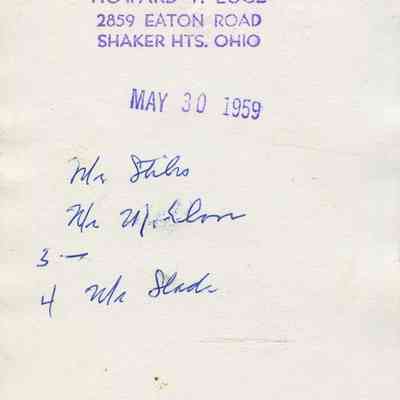 2859 EATON ROAD
SHAKER HTS. OHIO
MAY 30 1959
Mr Stibs
Mr
3 —
4 Mr Slade